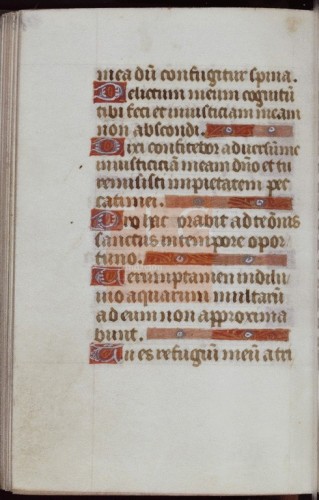 mea dū configitur spina.
Delictum meum cognitū
tibi feci et iniusticiam meam
non abscondi.
Dixi confitebor adversū me
iniusticiā meam dño et tu
remisisti impietatem pec
cati mei.
Pro hac orabit ad te oīnis
sanctus in tempore opor
tuno.
Uerumptamen in dilu
uio aquarum multarū
ad eum non approxima
bunt.
Tu es refugiū meū a tri